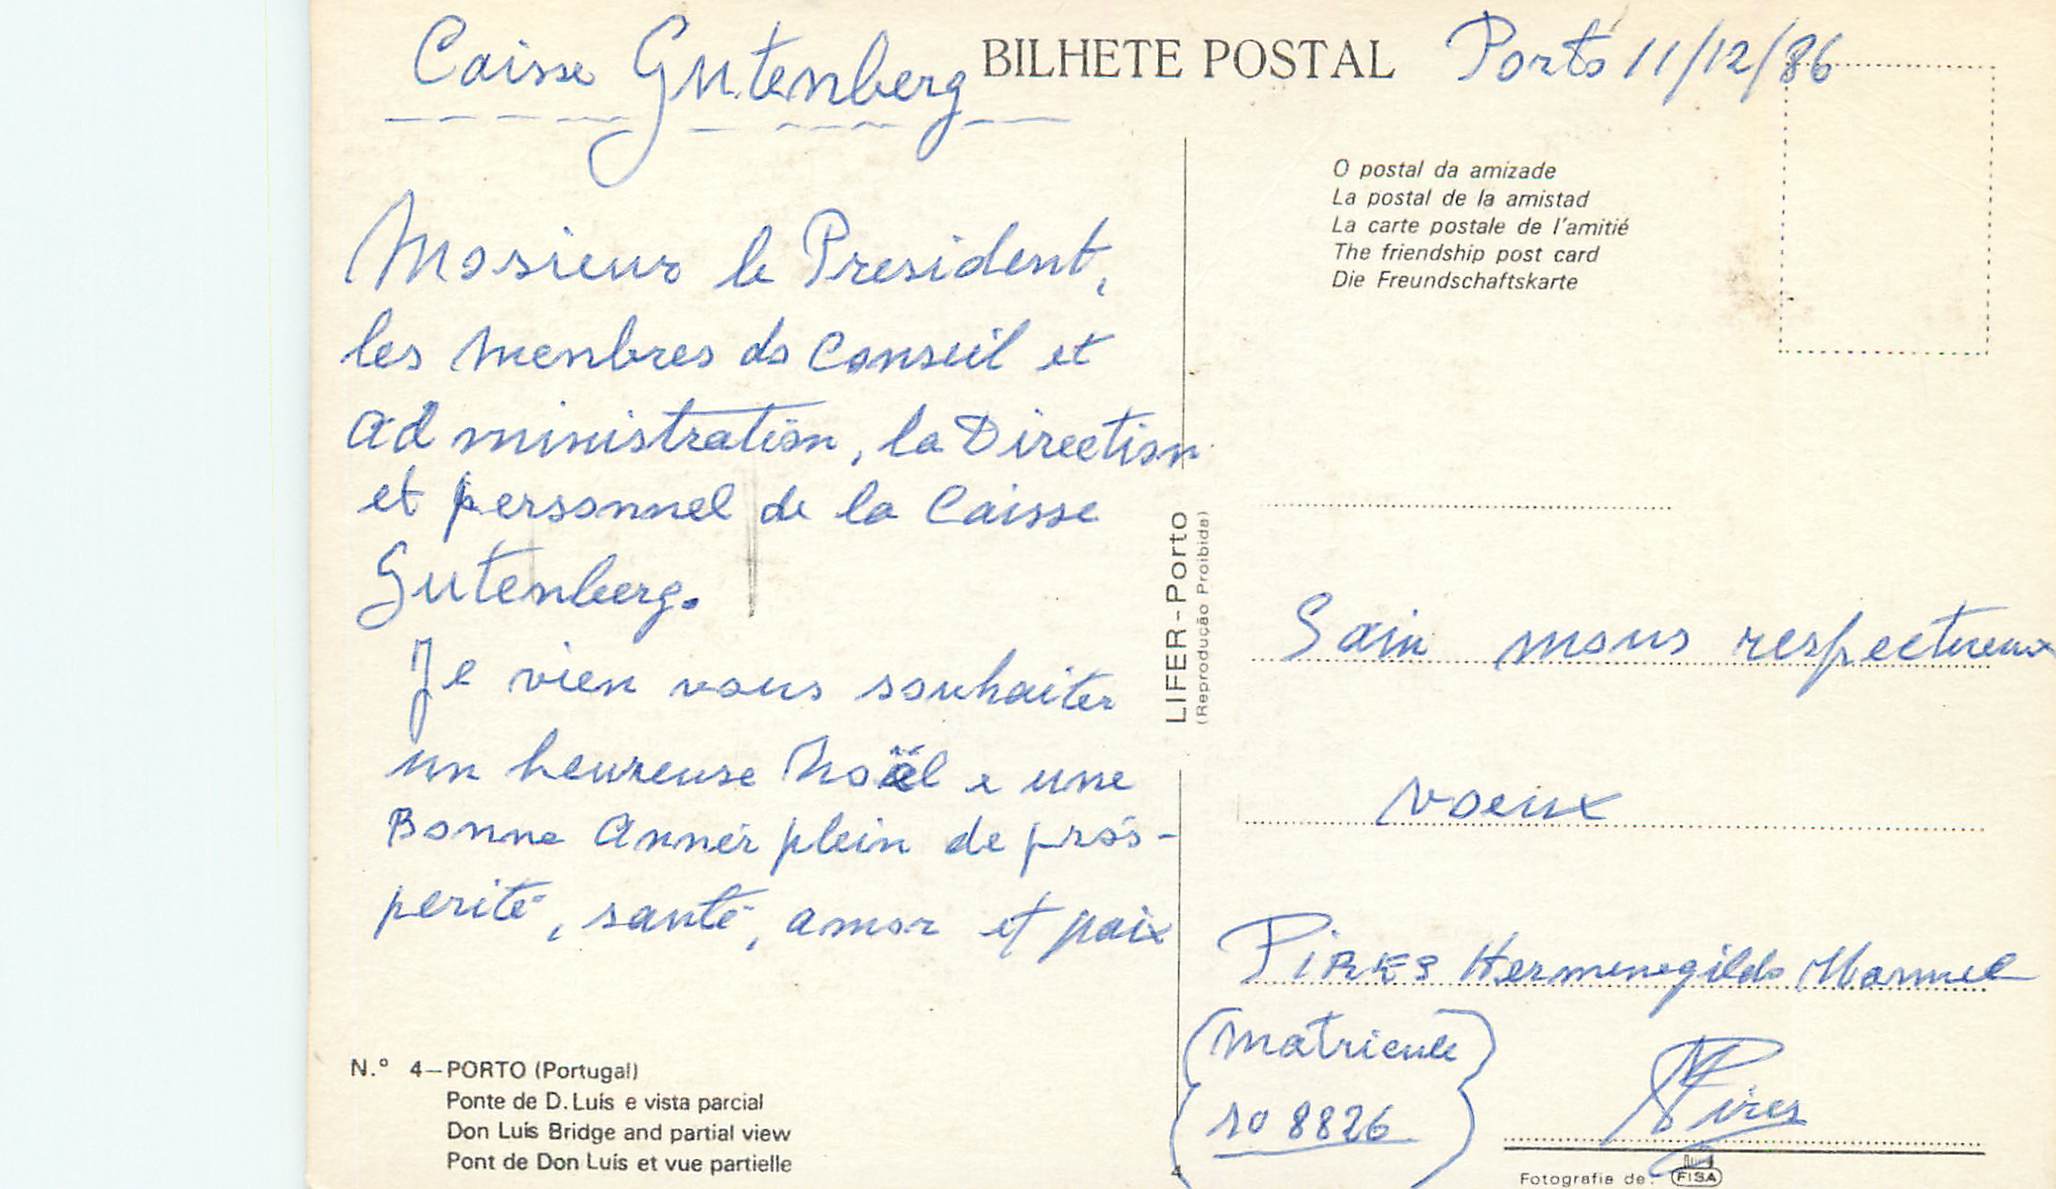 Caisse Gutenberg
BILHETE POSTAL
Porto 11/12/86
Mosieur le President,
les menbres do Conseil et
administration, la Direction
et personnel de la Caisse
Gutenberg.
Je vien vous souhaiter
un heureuse Noël e une
Bonne Annér plein de pros-
perité, santé, amor et paix
N.º 4—PORTO (Portugal)
Ponte de D. Luís e vista parcial
Don Luís Bridge and partial view
Pont de Don Luís et vue partielle
LIFER-Porto
(Reprodução Proibida)
4
O postal da amizade
La postal de la amistad
La carte postale de l'amitié
The friendship post card
Die Freundschaftskarte
mous respectueux
voeux
PIRES Hermenegildo Manuel
(matricule
no 8826)
Pires
Fotografia de: FISA